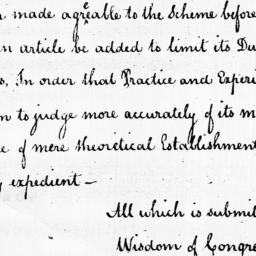 n made agreable to the Scheme before
n article be added to limit its Du
s, In order that Practice and Experi
n to judge more accurately of its m
e of mere theoretical Establishment
y expedient —
All which is submit
Wisdom of Congre